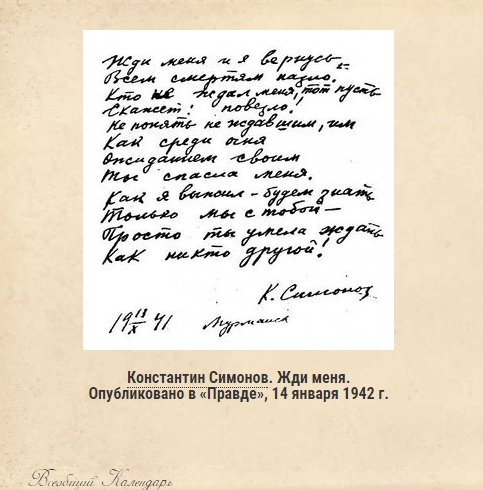 Жди меня и я вернусь
Всем смертям назло.
Кто не ждал меня, тот пусть
Скажет: повезло!
Не понять не ждавшим, им
Как среди огня
Ожиданием своим
Ты спасла меня.
Как я выжил – будем знать
Только мы с тобой –
Просто ты умела ждать
Как никто другой!
К. Симонов
19 13/X 41 Мурманск
Константин Симонов. Жди меня.
Опубликовано в «Правде», 14 января 1942 г.
Всеобщий Календарь